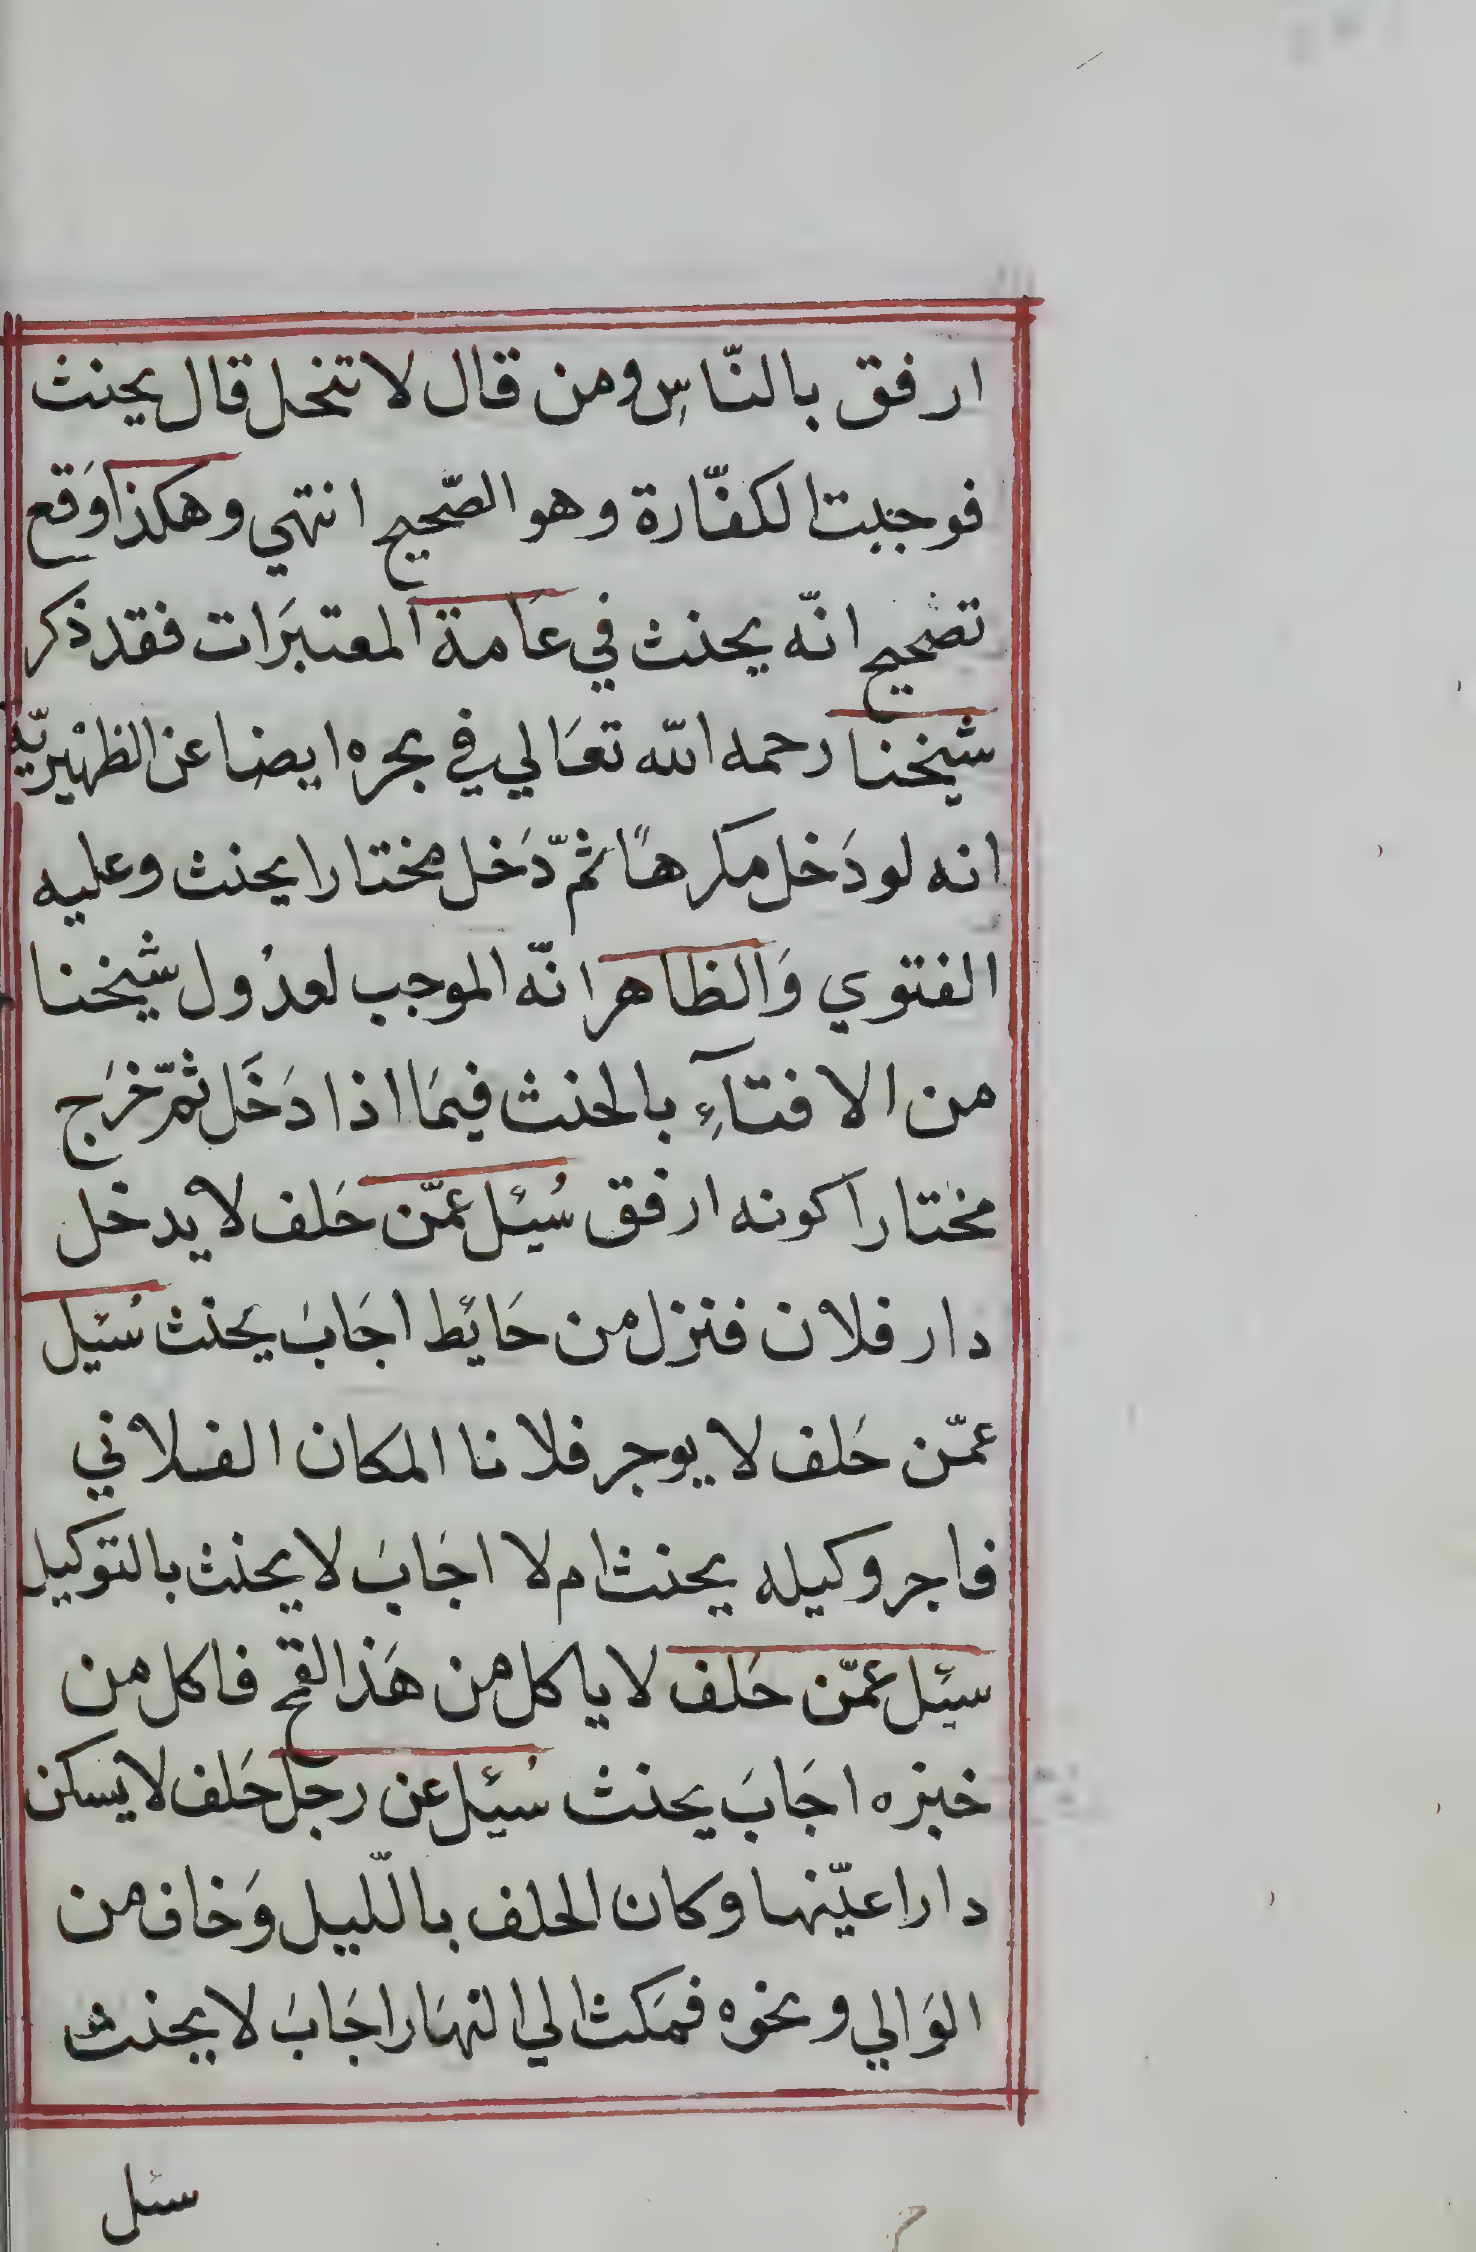 ارفق بالنّاسِ ومن قال لا تنحل قال يحنث
فوجبت الكفّارة وهو الصّحيح انتهي وهكذا وَقع
تصحيح انّه يحنث في عَامة المعتبَرات فقد ذكر
شيخنا رحمه الله تعَالي في بحره ايضا عن الظهْيريّة
انه لو دَخل مكرهًا ثمّ دَخل مختارا يحنث وعليه
الفتوي وَالظاهر انّه الموجب لعدُول شيخنا
من الافتآءِ بالحنث فيمَا اذا دَخَل ثمّ خرَج
مختارا كونه ارفق سُئِل عمّن حَلف لا يدخل
دار فلان فنزل من حَائِط اجَابَ يحنث سُئِل
عمّن حَلف لا يوجر فلانا المكان الفلاني
فاجر وكيله يحنث ام لا اجَابَ لا يحنث بالتوكيل
سئِل عمّن حَلف لا ياكل من هَذا القمح فاكل من
خبزه اجَابَ يحنث سُئِل عن رجل حَلف لا يسكن
دارا عيّنها وكان الحلف باللّيل وَخاف من
الوَالي ونحوه فمَكث الي النهَار اجَابَ لا يحنث
سئل